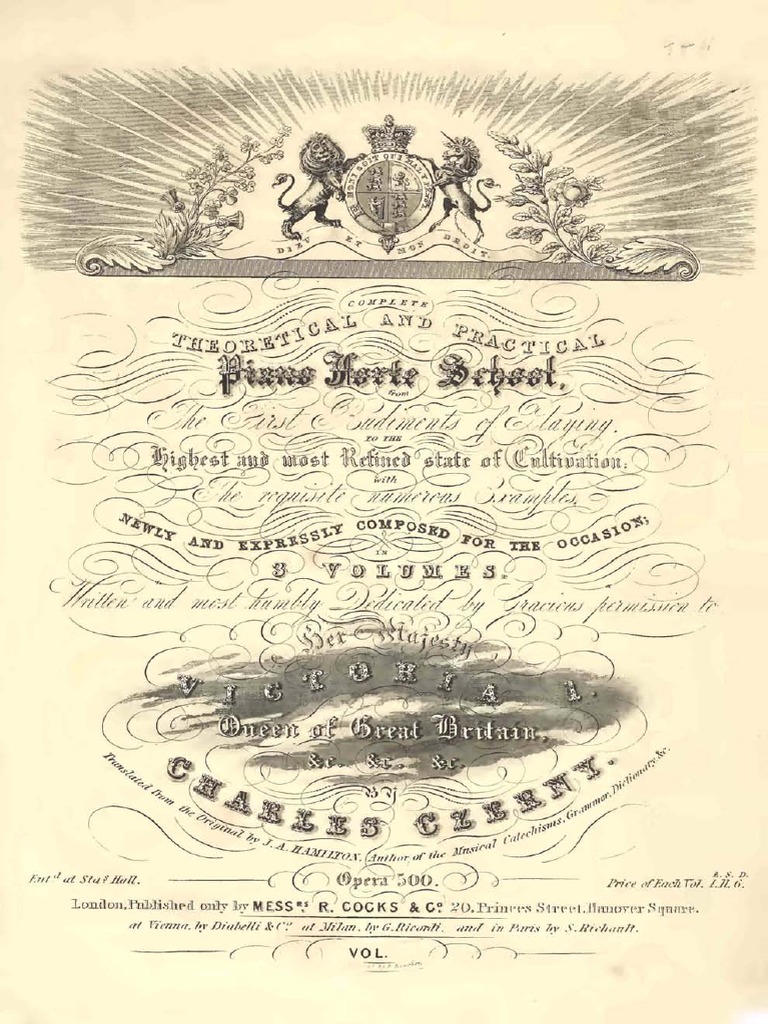 HONI SOIT QUI MAL Y PENSE
DIEU ET MON DROIT.
COMPLETE
THEORETICAL AND PRACTICAL
Piano Forte School,
from
The First Rudiments of Playing,
TO THE
Highest and most Refined state of Cultivation;
with
The requisite numerous Examples,
NEWLY AND EXPRESSLY COMPOSED FOR THE OCCASION;
IN
3 VOLUMES.
Written and most humbly Dedicated by Gracious permission to
Her Majesty
VICTORIA I.
Queen of Great Britain,
&c. &c. &c.
By
CHARLES CZERNY.
Translated from the Original by J. A. HAMILTON, (Author of the Musical Catechisms, Grammar, Dictionary &c.
Ent.d at Sta.s Hall.
Opera 500.
£. S. D.
Price of Each Vol. 1.11.6.
London, Published only by MESS.RS R. COCKS & Co. 20, Princes Street, Hanover Square.
at Vienna, by Diabelli & Co. at Milan, by G. Ricordi. and in Paris by S. Richault.
VOL.